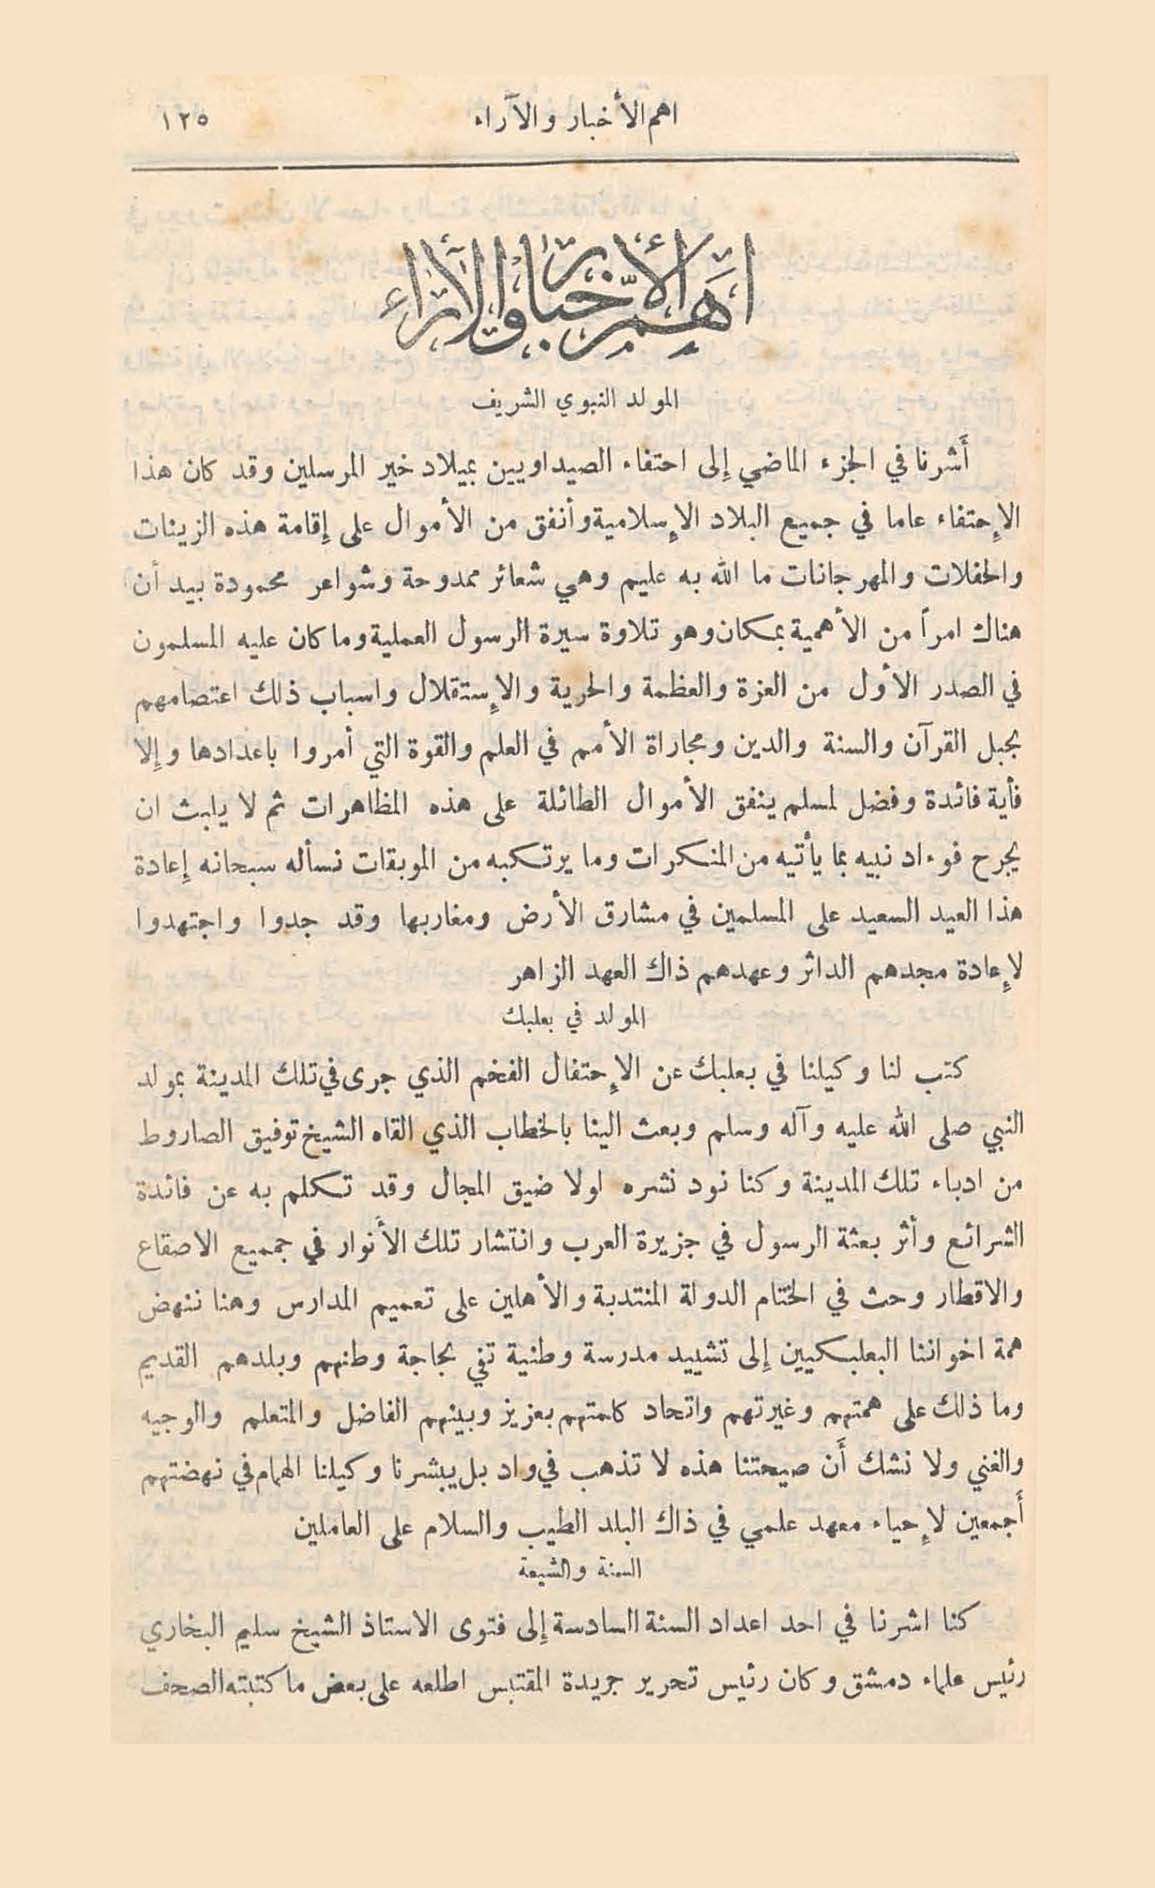 اهم الأخبار والآراء ١٢٥
اهم الأخبار والآراء
المولد النبوي الشريف
أشرنا في الجزء الماضي إلى احتفاء الصيداويين بميلاد خير المرسلين وقد كان هذا
الإحتفاء عاما في جميع البلاد الإسلامية وأنفق من الأموال على إقامة هذه الزينات
والحفلات والمهرجانات ما الله به عليم وهي شعائر ممدوحة وشواعر محمودة بيد أن
هناك امراً من الأهمية بمكان وهو تلاوة سيرة الرسول العملية وما كان عليه المسلمون
في الصدر الأول من العزة والعظمة والحرية والإستقلال واسباب ذلك اعتصامهم
بحبل القرآن والسنة والدين ومجاراة الأمم في العلم والقوة التي أمروا باعدادها وإلا
فأية فائدة وفضل لمسلم ينفق الأموال الطائلة على هذه المظاهرات ثم لا يلبث ان
يجرح فوءاد نبيه بما يأتيه من المنكرات وما يرتكبه من الموبقات نسأله سبحانه إعادة
هذا العيد السعيد على المسلمين في مشارق الأرض ومغاربها وقد جدوا واجتهدوا
لإعادة مجدهم الداثر وعهدهم ذاك العهد الزاهر
المولد في بعلبك
كتب لنا وكيلنا في بعلبك عن الإحتفال الفخم الذي جرى في تلك المدينة بمولد
النبي صلى الله عليه وآله وسلم وبعث الينا بالخطاب الذي القاه الشيخ توفيق الصاروط
من ادباء تلك المدينة وكنا نود نشره لولا ضيق المجال وقد تكلم به عن فائدة
الشرائع وأثر بعثة الرسول في جزيرة العرب وانتشار تلك الأنوار في جميع الاصقاع
والاقطار وحث في الختام الدولة المنتدبة والأهلين على تعميم المدارس وهنا ننهض
همة اخواننا البعلبكيين إلى تشييد مدرسة وطنية تفي بحاجة وطنهم وبلدهم القديم
وما ذلك على همتهم وغيرتهم واتحاد كلمتهم بعزيز وبينهم الفاضل والمتعلم والوجيه
والغني ولا نشك أن صيحتنا هذه لا تذهب في واد بل يبشرنا وكيلنا الهمام في نهضتهم
أجمعين لإحياء معهد علمي في ذاك البلد الطيب والسلام على العاملين
السنة والشيعة
كنا اشرنا في احد اعداد السنة السادسة إلى فتوى الاستاذ الشيخ سليم البخاري
رئيس علماء دمشق وكان رئيس تحرير جريدة المقتبس اطلعه على بعض ما كتبته الصحف